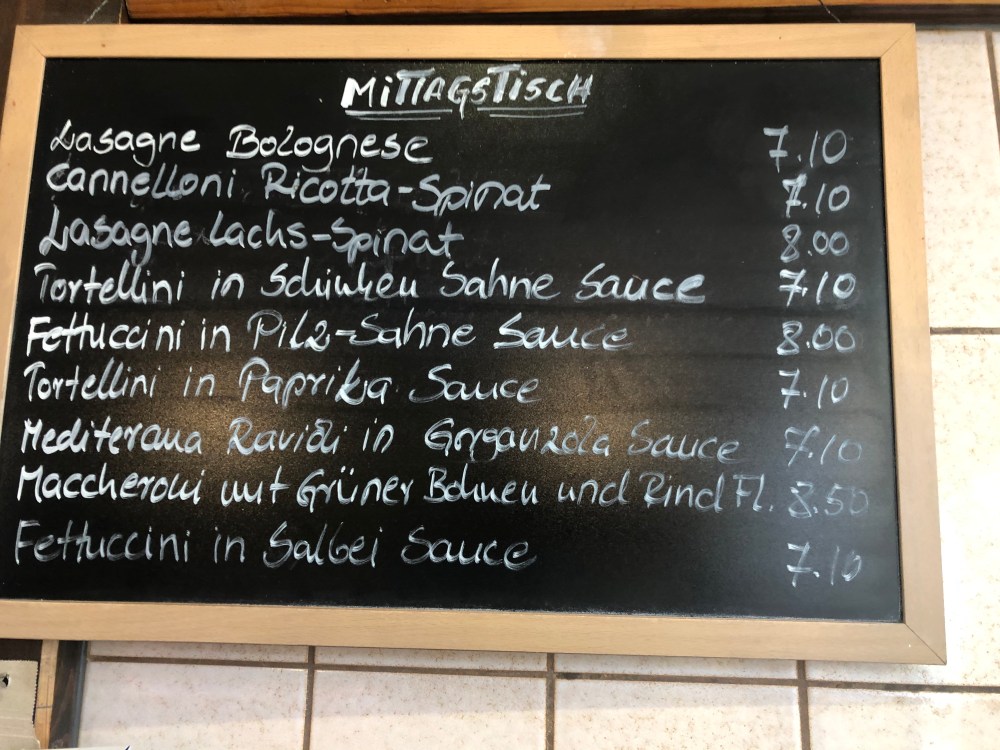 MiTTAGSTiSCH
Lasagne Bolognese 7.10
Cannelloni Ricotta-Spinat 7.10
Lasagne Lachs-Spinat 8.00
Tortellini in Schinken Sahne Sauce 7.10
Fettuccini in Pilz-Sahne Sauce 8.00
Tortellini in Paprika Sauce 7.10
Mediterana Ravioli in Gorganzola Sauce 7.10
Maccheroni mit Grüner Bohnen und Rind Fl. 8.50
Fettuccini in Salbei Sauce 7.10